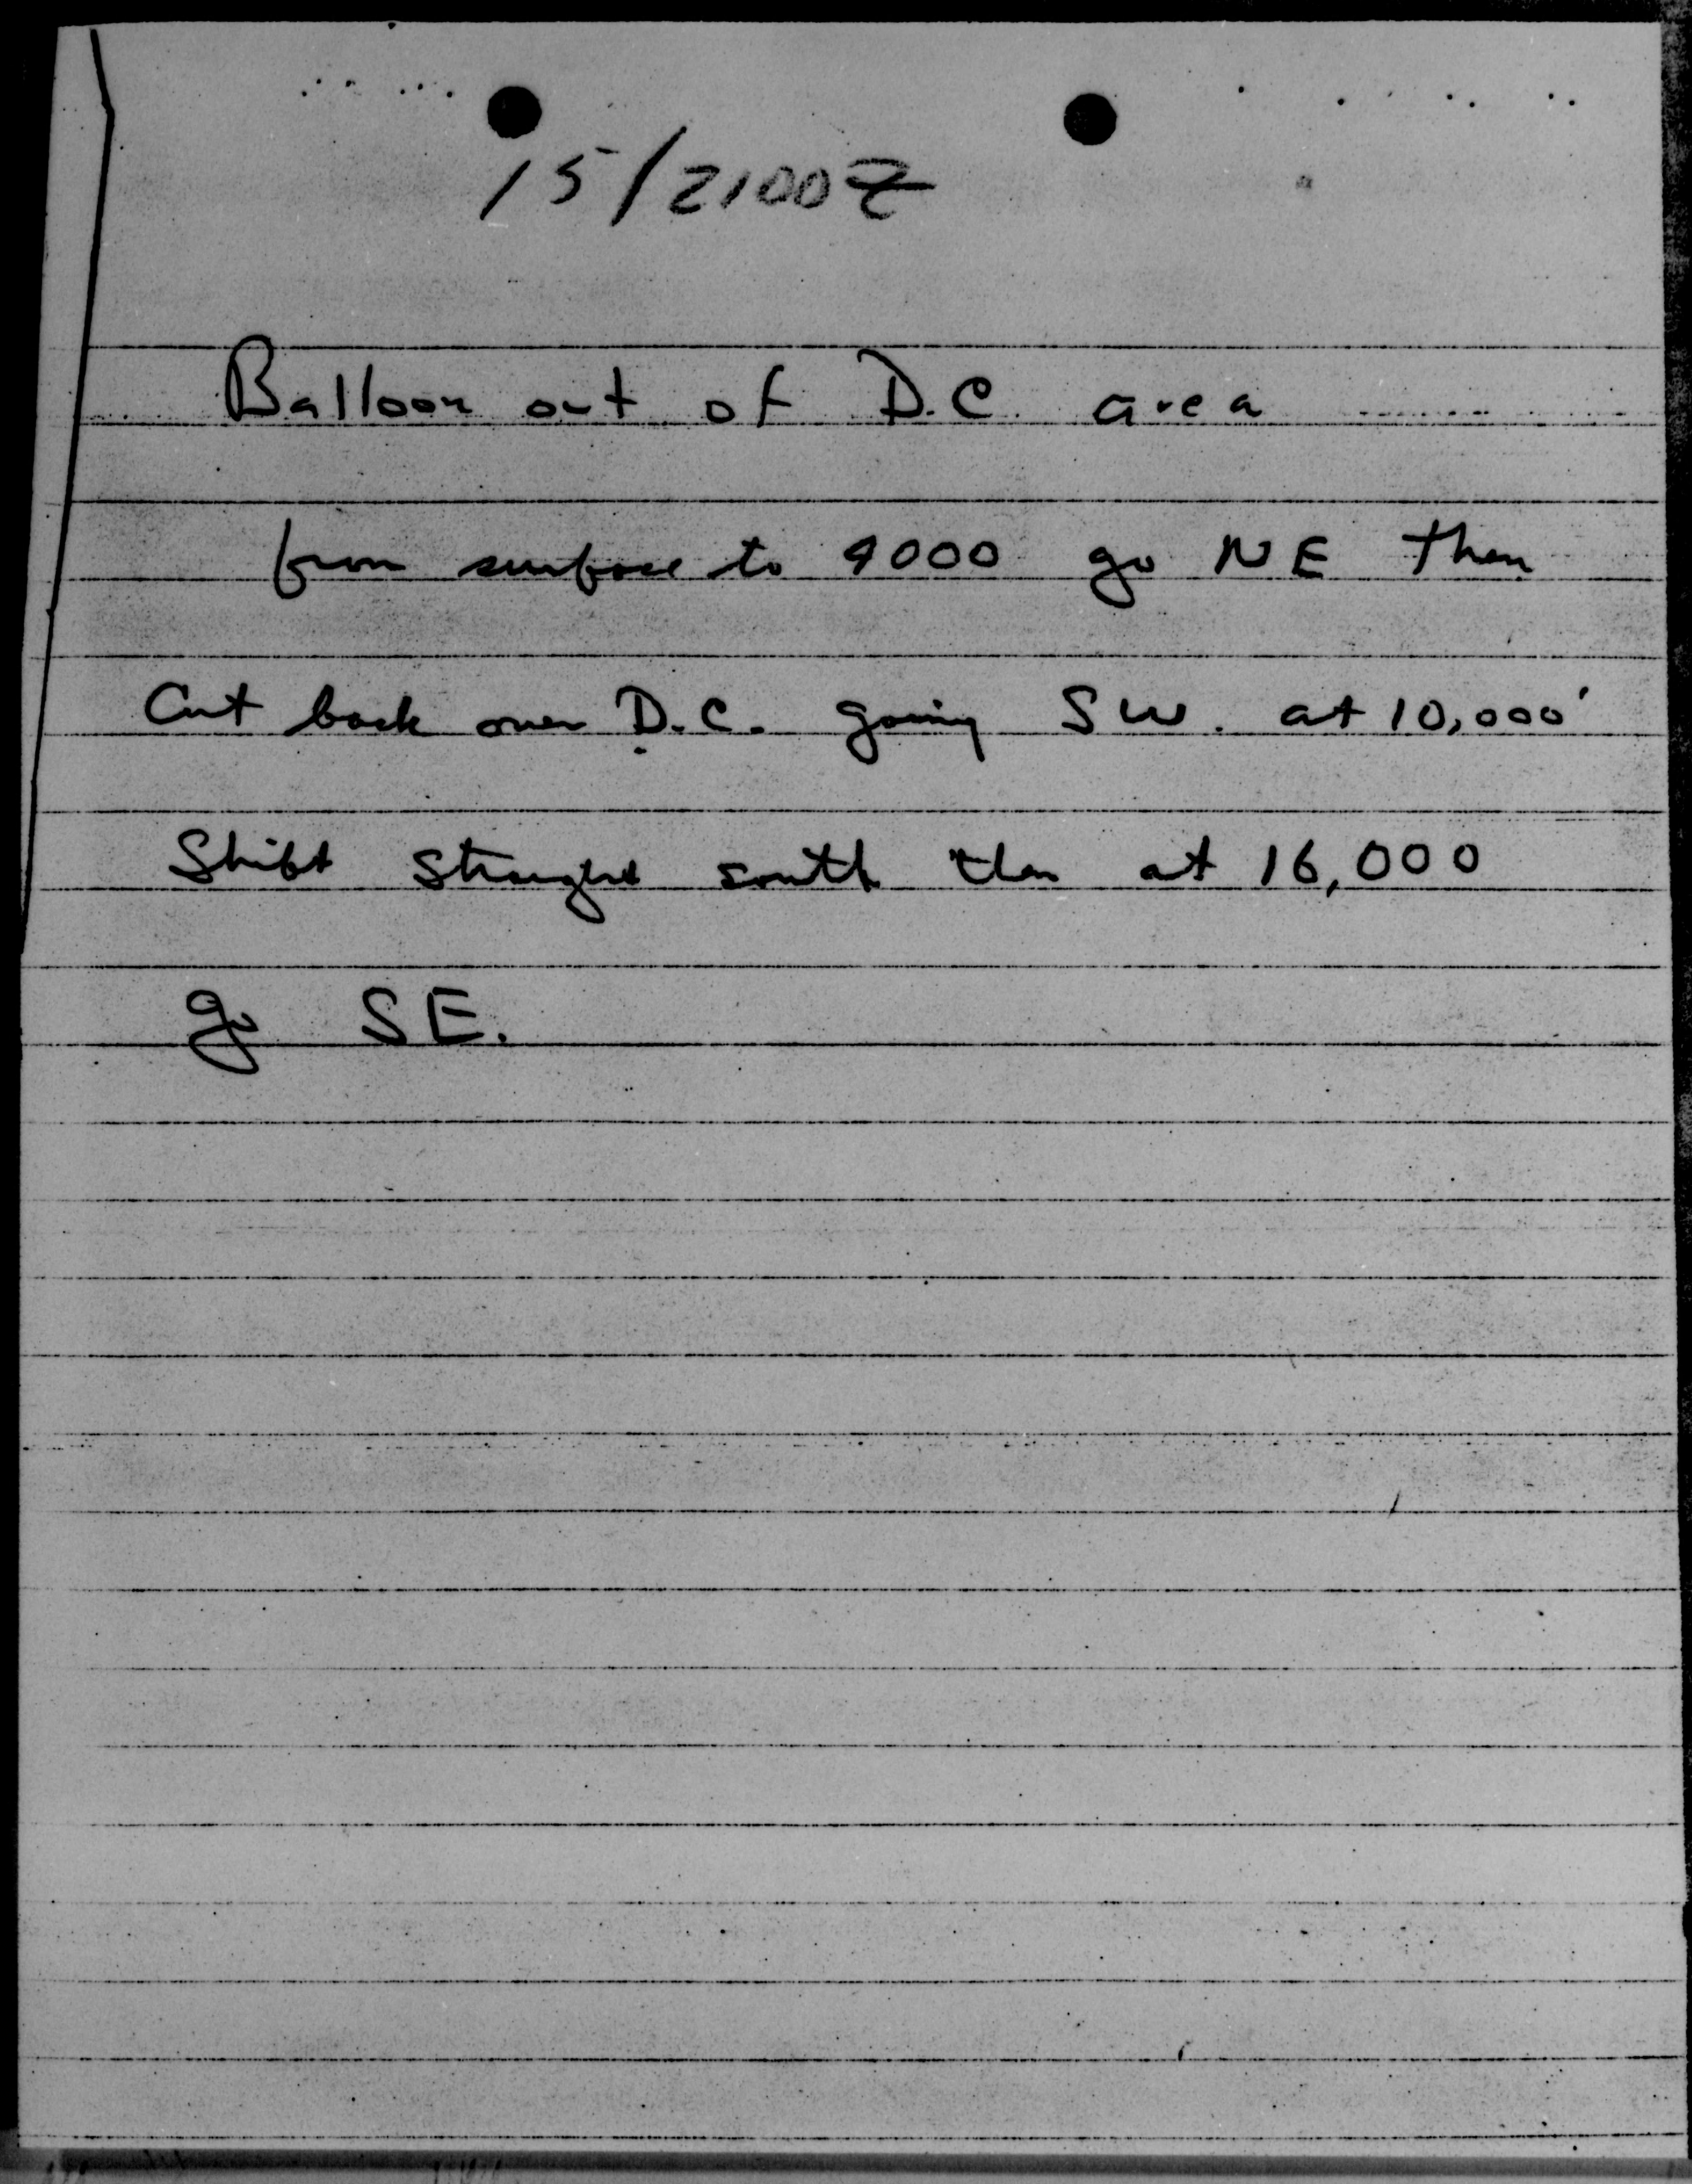 15/2100Z
Balloon out of D.C. area
from surface to 9000 go NE then
Cut back over D.C. going SW. at 10,000'
Shift straight south then at 16,000
go SE.